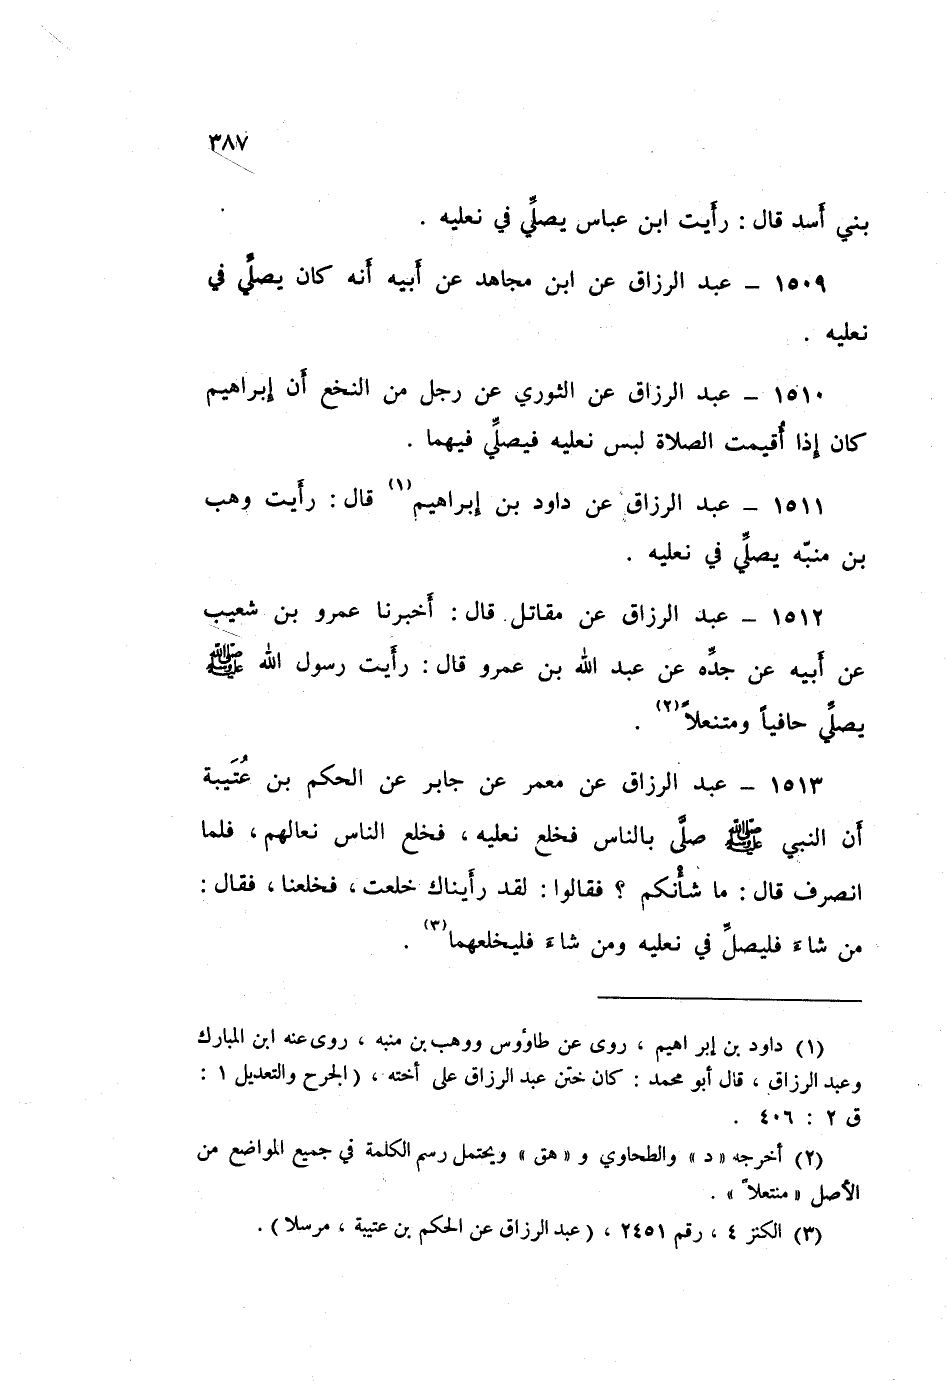 ٣٨٧
بني أَسد قال : رأَيت ابن عباس يصلِّي في نعليه .
١٥٠٩ – عبد الرزاق عن ابن مجاهد عن أَبيه أَنه كان يصلِّي في
نعليه .
١٥١٠ – عبد الرزاق عن الثوري عن رجل من النخع أَن إِبراهيم
كان إِذا أُقيمت الصلاة لبس نعليه فيصلِّي فيهما .
١٥١١ – عبد الرزاق عن داود بن إِبراهيم(١) قال : رأَيت وهب
بن منبّه يصلِّي في نعليه .
١٥١٢ – عبد الرزاق عن مقاتل قال : أَخبرنا عمرو بن شعيب
عن أَبيه عن جدِّه عن عبد الله بن عمرو قال : رأَيت رسول الله ﷺ
يصلِّي حافياً ومتنعلاً(٢) .
١٥١٣ – عبد الرزاق عن معمر عن جابر عن الحكم بن عُتَيبة
أَن النبي ﷺ صلَّى بالناس فخلع نعليه ، فخلع الناس نعالهم ، فلما
انصرف قال : ما شأْنكم ؟ فقالوا : لقد رأَيناك خلعت ، فخلعنا ، فقال :
من شاءَ فليصلِّ في نعليه ومن شاءَ فليخلعهما(٣) .
(١) داود بن إبراهيم ، روى عن طاؤوس ووهب بن منبه ، روى عنه ابن المبارك
وعبد الرزاق ، قال أبو محمد : كان ختن عبد الرزاق على أخته ، (الجرح والتعديل ١ :
ق ٢ : ٤٠٦ .
(٢) أخرجه «د» والطحاوي و «هق» ويحتمل رسم الكلمة في جميع المواضع من
الأصل «منتعلاً» .
(٣) الكنز ٤ ، رقم ٢٤٥١ ، (عبد الرزاق عن الحكم بن عتيبة ، مرسلا) .